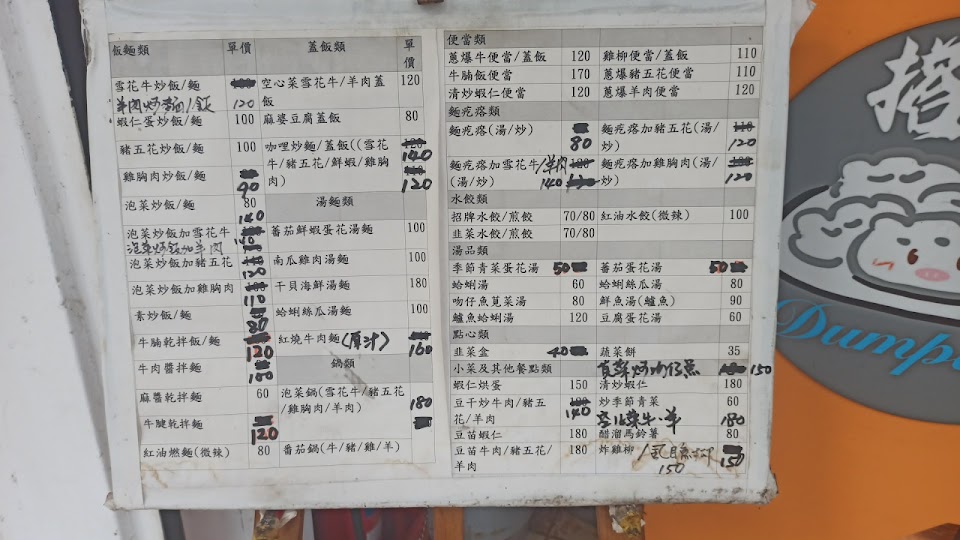 飯麵類 單價
雪花牛炒飯/麵
羊肉炒麵/飯 120
蝦仁蛋炒飯/麵 100
豬五花炒飯/麵 100
雞胸肉炒飯/麵 90
泡菜炒飯/麵 80
泡菜炒飯加雪花牛 140
泡菜炒飯加羊肉
泡菜炒飯加豬五花
泡菜炒飯加雞胸肉 110
素炒飯/麵 80
牛腩乾拌飯/麵 120
牛肉醬拌麵
麻醬乾拌麵 60
牛腱乾拌麵 120
紅油燃麵(微辣) 80
蓋飯類 單價
空心菜雪花牛/羊肉蓋飯 120
麻婆豆腐蓋飯 80
咖哩炒麵/蓋飯((雪花 140
牛/豬五花/鮮蝦/雞胸肉) 120
湯麵類
蕃茄鮮蝦蛋花湯麵 100
南瓜雞肉湯麵 100
干貝海鮮湯麵 180
蛤蜊絲瓜湯麵 100
紅燒牛肉麵(原汁) 160
鍋類
泡菜鍋(雪花牛/豬五花
/雞胸肉/羊肉) 180
番茄鍋(牛/豬/雞/羊)
便當類
蔥爆牛便當/蓋飯 120 雞柳便當/蓋飯 110
牛腩飯便當 170 蔥爆豬五花便當 110
清炒蝦仁便當 120 蔥爆羊肉便當 120
麵疙瘩類
麵疙瘩(湯/炒) 80 麵疙瘩加豬五花(湯/炒) 120
麵疙瘩加雪花牛/羊肉
(湯/炒) 140 麵疙瘩加雞胸肉(湯/炒) 120
水餃類
招牌水餃/煎餃 70/80 紅油水餃(微辣) 100
韭菜水餃/煎餃 70/80
湯品類
季節青菜蛋花湯 50 蕃茄蛋花湯 50
蛤蜊湯 60 蛤蜊絲瓜湯 80
吻仔魚莧菜湯 80 鮮魚湯(鱸魚) 90
鱸魚蛤蜊湯 120 豆腐蛋花湯 60
點心類
韭菜盒 40 蔬菜餅 35
小菜及其他餐點類 莧菜炒吻仔魚 150
蝦仁烘蛋 150 清炒蝦仁 180
豆干炒牛肉/豬五花/羊肉 140 炒季節青菜 60
空心菜牛、羊 180
豆苗蝦仁 180 醋溜馬鈴薯 80
豆苗牛肉/豬五花/羊肉 180 炸雞柳 150
150
搭
Dump